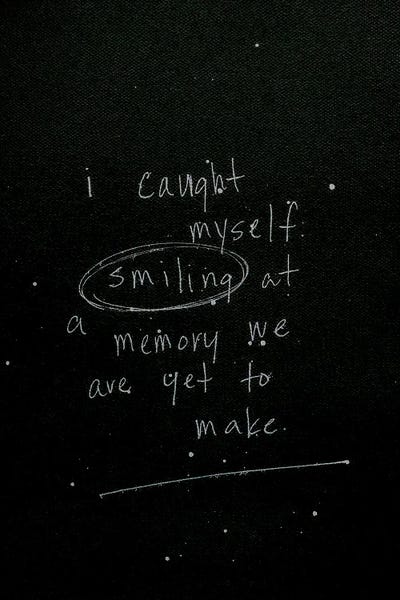 i caught
myself
smiling at
a
memory we
are yet to
make.